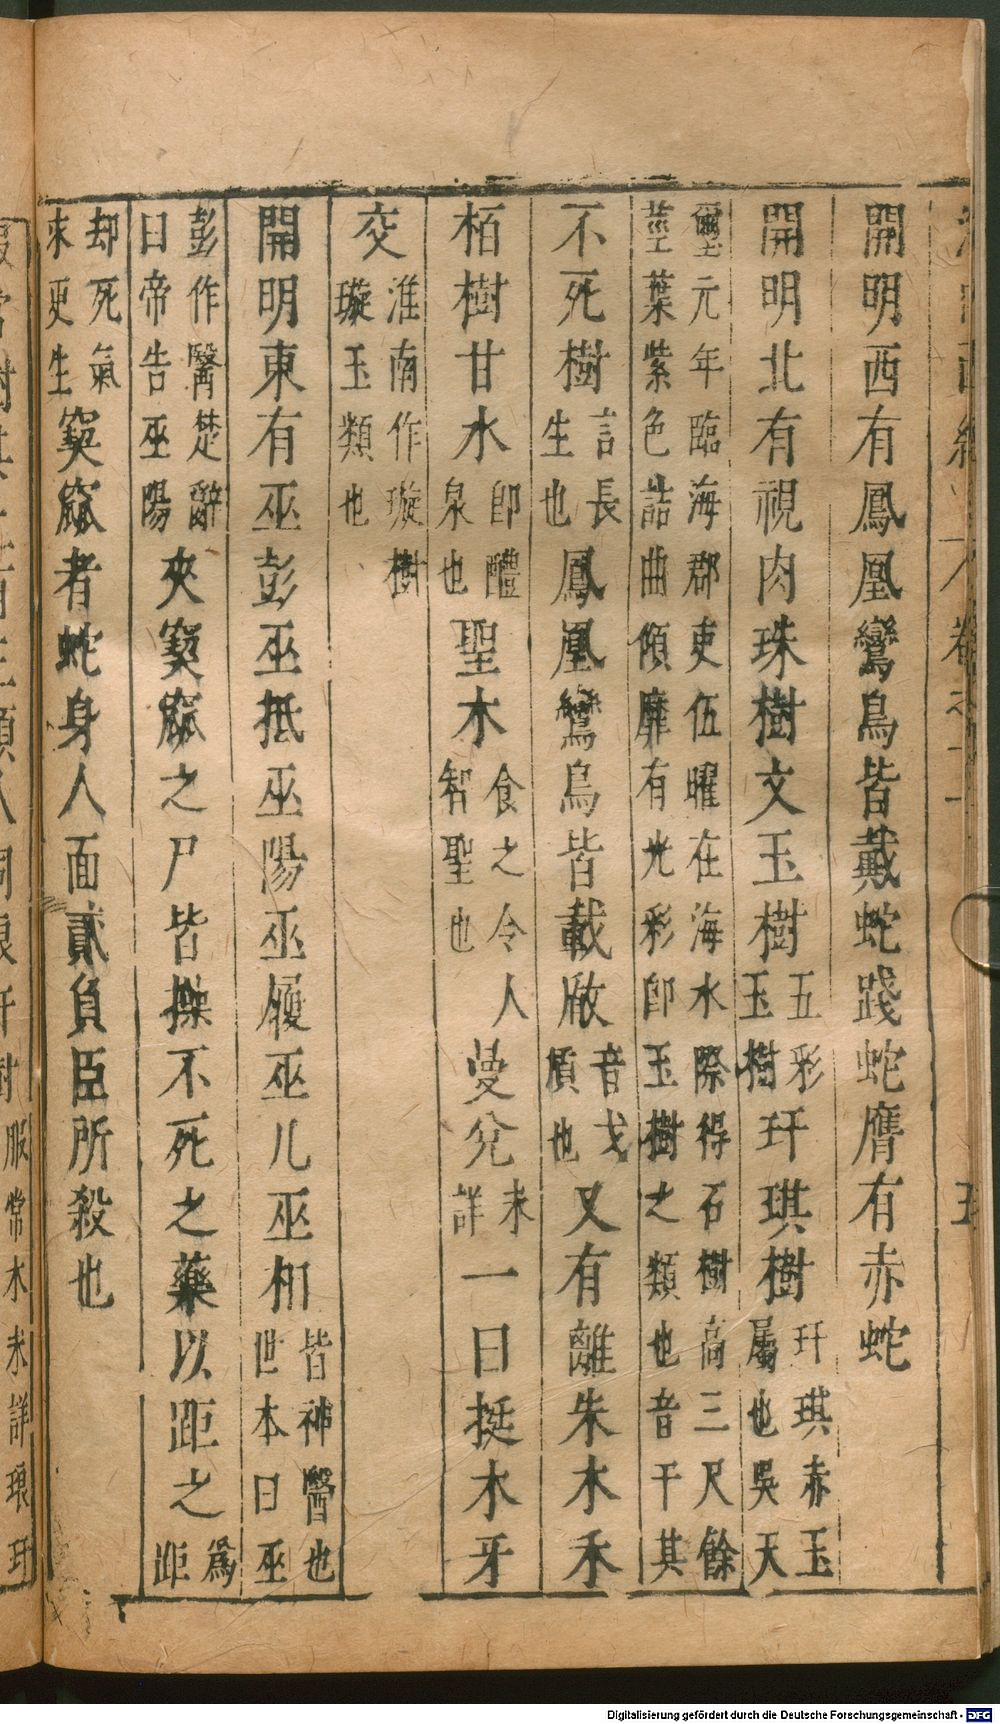 開明西有鳳凰鸞鳥皆戴蛇踐蛇膺有赤蛇
開明北有視肉珠樹文玉樹五彩玉樹玗琪樹玗琪赤玉屬也吳天
璽元年臨海郡吏伍曜在海水際得石樹高三尺餘莖葉紫色詰曲傾靡有光彩卽玉樹之類也音干其
不死樹言長生也鳳凰鸞鳥皆載瞂音戈楯也又有離朱木禾
栢樹甘水卽醴泉也聖木食之令人智聖也曼兊未詳一曰挺木牙
交淮南作璇樹璇玉類也
開明東有巫彭巫抵巫陽巫履巫凡巫相皆神醫也世本曰巫
彭作醫楚辭曰帝告巫陽夾窫窳之尸皆操不死之藥以距之爲距
却死氣求更生窫窳者蛇身人面貳負臣所殺也
服常木未詳琅玕
Digitalisierung gefördert durch die Deutsche Forschungsgemeinschaft - DFG